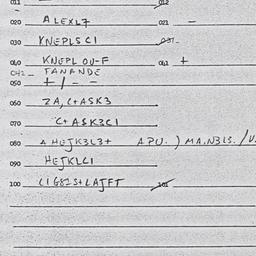 011 012
020 ALEXL7 021 -
030 KNEPLSCI 031-
040 KNEPL OU-F 041 +
CH2- TANANDE
050 +/--
060 ZA, C+ASK3
070 C+ASK3CI
080 A HEJK3L3+ APU.) MA.N3LS./V.
090 HEJKLCI
100 CIG8IS+LAJFT 101